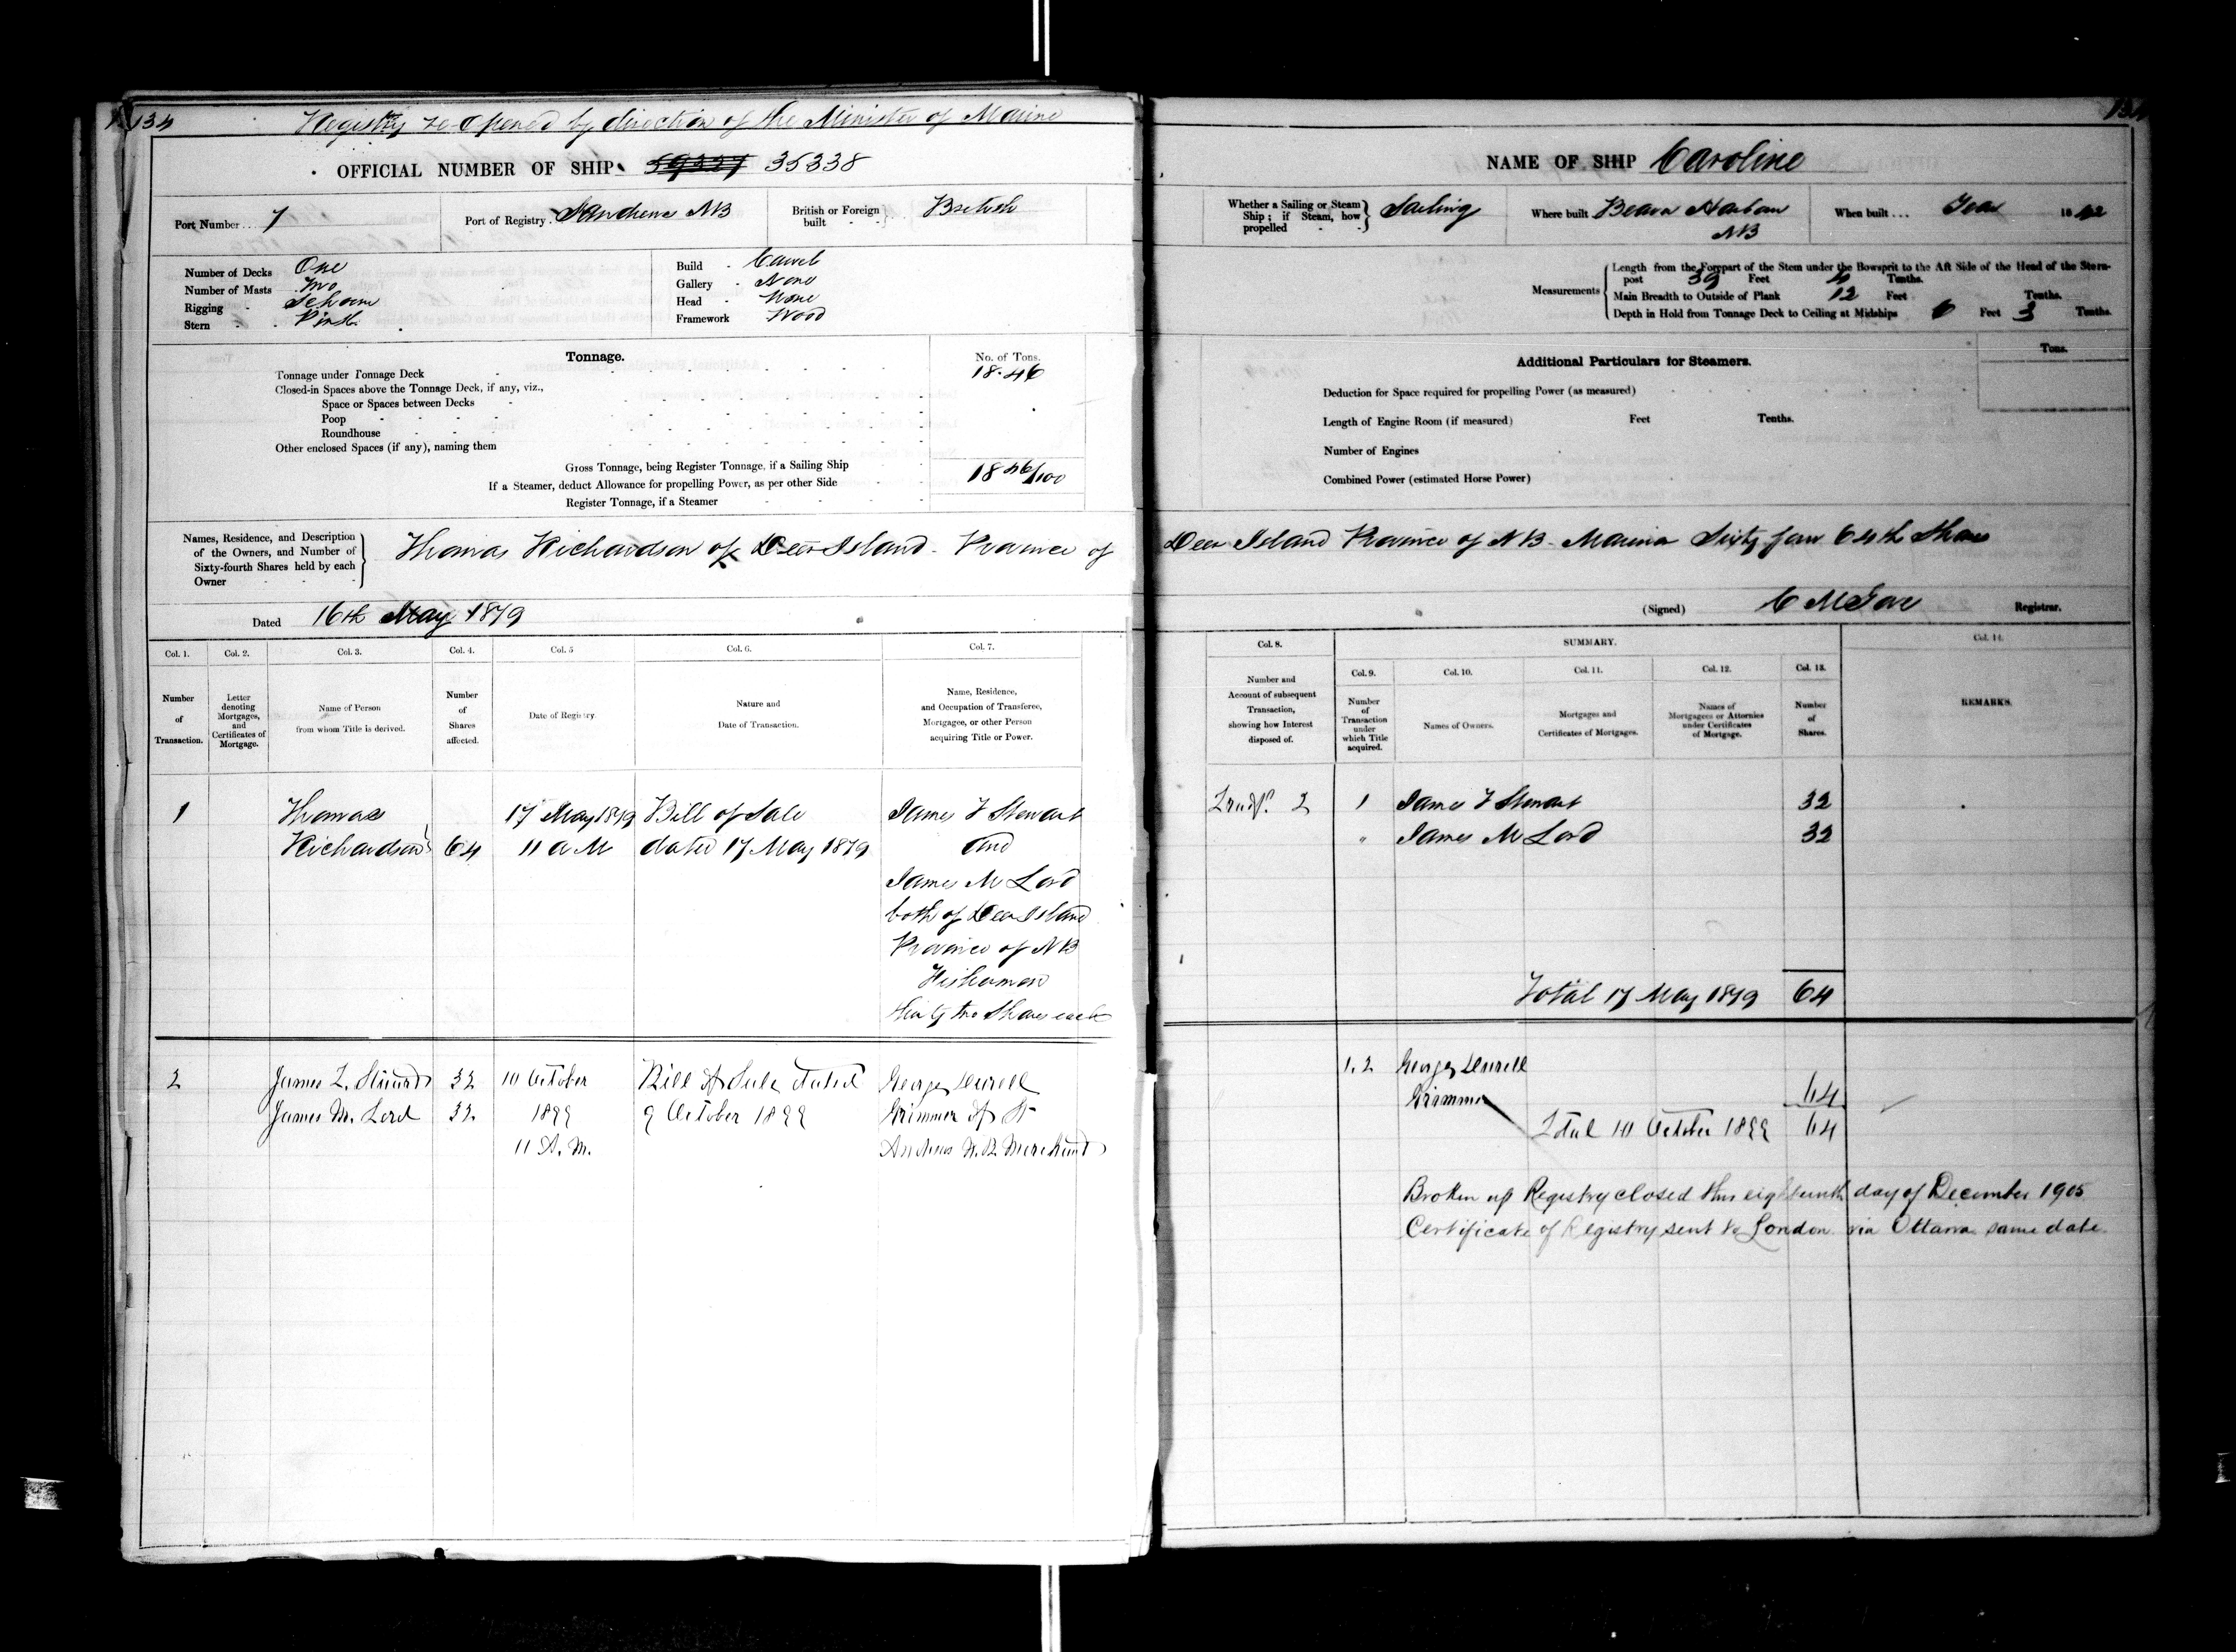 134
Registry re-opened by direction of the Minister of Marine
OFFICIAL NUMBER OF SHIP 59337 35338
Port Number... 7
Port of Registry. St Andrews NB
British or Foreign built British
Number of Decks One
Number of Masts Two
Rigging Schooner
Stern Pink
Build Carvel
Gallery None
Head None
Framework Wood
Tonnage.
No. of Tons.
Tonnage under Tonnage Deck 18.46
Closed-in Spaces above the Tonnage Deck, if any, viz.,
Space or Spaces between Decks
Poop
Roundhouse
Other enclosed Spaces (if any), naming them
Gross Tonnage, being Register Tonnage, if a Sailing Ship 18 46/100
If a Steamer, deduct Allowance for propelling Power, as per other Side
Register Tonnage, if a Steamer
Names, Residence, and Description of the Owners, and Number of Sixty-fourth Shares held by each Owner
Thomas Richardson of Deer Island - Province of
Dated 16th May 1879
Col. 1. Col. 2. Col. 3. Col. 4. Col. 5 Col. 6. Col. 7.
Number of Transaction.
Letter denoting Mortgages, and Certificates of Mortgage.
Name of Person from whom Title is derived.
Number of Shares affected.
Date of Registry
Nature and Date of Transaction.
Name, Residence, and Occupation of Transferee, Mortgagee, or other Person acquiring Title or Power.
1 Thomas 17 May 1879 Bill of Sale James F Stewart
Richardson 64 11 a M dated 17 May 1879 and
James M Lord
both of Deer Island
Province of NB
Fishermen
thirty two Shares each
2 James F. Stewart 32 10 October Bill of Sale dated George Durell
James M. Lord 32. 1899 9 October 1899 Grimmer of St
11 A. M. Andrews N.B. Merchant
134
NAME OF SHIP Caroline
Whether a Sailing or Steam Ship; if Steam, how propelled Sailing
Where built Beaver Harbour NB
When built... Year 1862
Measurements
Length from the Forepart of the Stem under the Bowsprit to the Aft Side of the Head of the Stern-post 39 Feet 4 Tenths.
Main Breadth to Outside of Plank 12 Feet Tenths.
Depth in Hold from Tonnage Deck to Ceiling at Midships 6 Feet 3 Tenths.
Additional Particulars for Steamers.
Tons.
Deduction for Space required for propelling Power (as measured)
Length of Engine Room (if measured) Feet Tenths.
Number of Engines
Combined Power (estimated Horse Power)
Deer Island Province of NB Mariner Sixty four 64th Shares
(Signed) C M Gove Registrar.
Col. 8. SUMMARY. Col. 14.
Col. 9. Col. 10. Col. 11. Col. 12. Col. 13.
Number and Account of subsequent Transaction, showing how Interest disposed of.
Number of Transaction under which Title acquired.
Names of Owners.
Mortgages and Certificates of Mortgages.
Names of Mortgagees or Attornies under Certificates of Mortgage.
Number of Shares.
REMARKS.
2 1 James F Stewart 32
" James M Lord 32
Total 17 May 1879 64
1.2 George Durell
Grimmer 64
Total 10 October 1899 64
Broken up Registry closed this eighteenth day of December 1905
Certificate of Registry sent to London via Ottawa same date